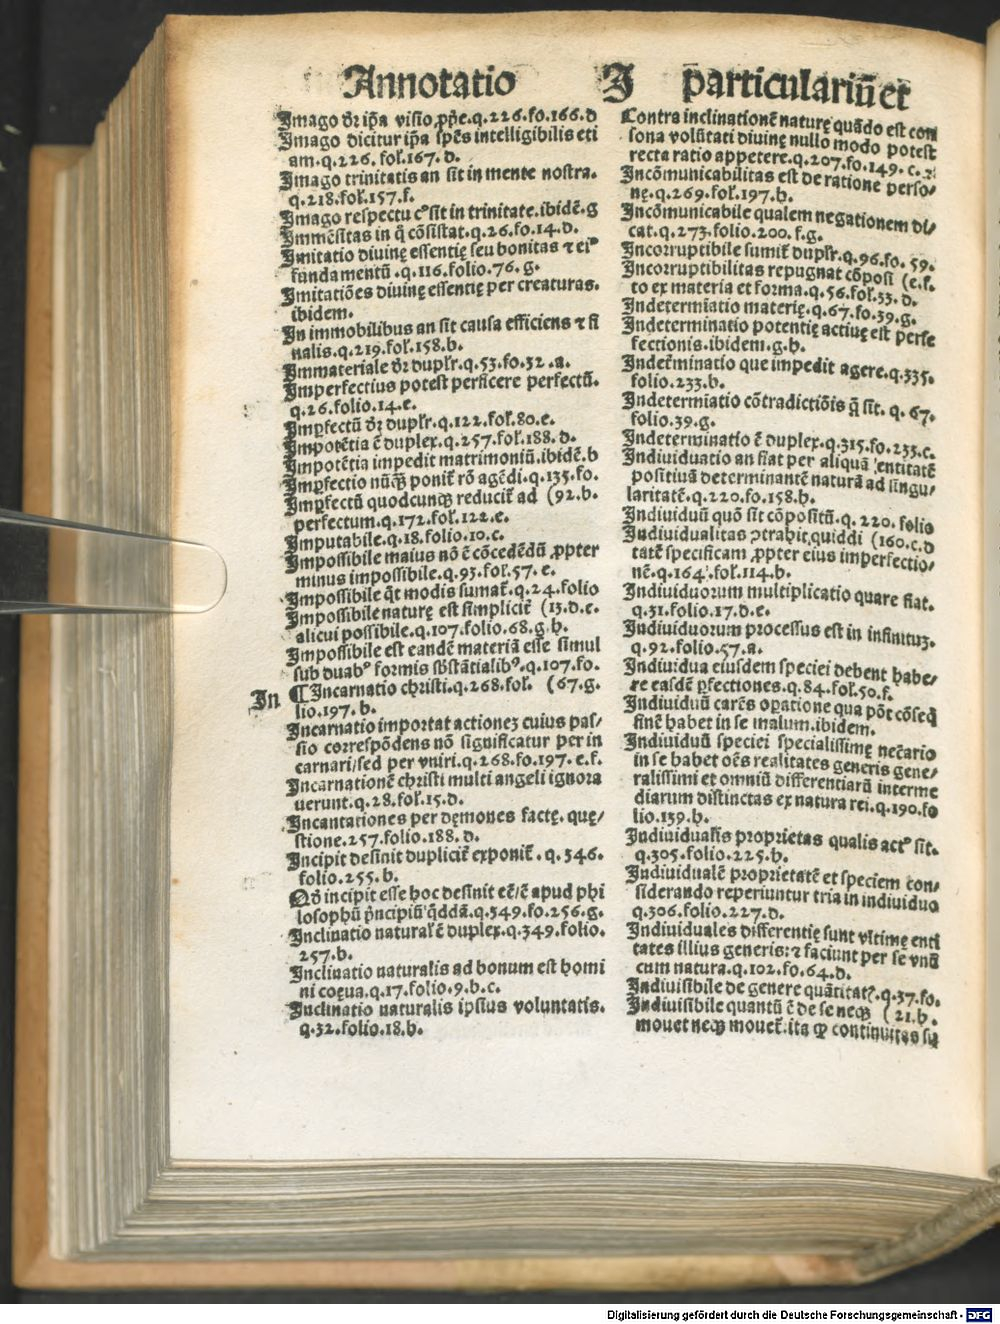 Annotatio I particulariũ et
Imago dr̃ ip̃a visio ꝓp̃e.q.226.fo.166.d
Imago dicitur ip̃a sp̃es intelligibilis eti
am.q.226. fol.167. d.
Imago trinitatis an sit in mente nostra.
q.218.fol.157.f.
Imago respectu cꝰ sit in trinitate.ibidẽ.g
Immẽsitas in q̃ cõsistat.q.26.fo.14.d.
Imitatio diuinę essentię seu bonitas ⁊ eiꝰ
fundamentũ.q.116.folio.76.g.
Imitatiões diuinę essentię per creaturas.
ibidem.
In immobilibus an sit causa efficiens ⁊ fi
nalis.q.219.fol.158.b.
Immateriale dr̃ duplr̃.q.53.fo.32.a.
Imperfectius potest perficere perfectũ.
q.26.folio.14.e.
Imꝑfectũ dr̃ duplr̃.q.122.fol.80.e.
Impotẽtia ẽ duplex.q.257.fol.188. d.
Impotẽtia impedit matrimoniũ.ibidẽ.h
Imꝑfectio nũq̃ʒ ponit̃ rõ agẽdi.q.135.fo.
Imꝑfectũ quodcunqʒ reducit̃ ad (92.b.
perfectum.q.172.fol.122.e.
Imputabile.q.18.folio.10.c.
Impossibile maius nõ ẽ cõcedẽdũ ꝓpter
minus impossibile.q.93.fol.57. e.
Impossibile q̃t modis sumat̃.q.24.folio
Impossibile naturę est simplicit̃ (13.d.e.
alicui possibile.q.107.folio.68.g.h.
Impossibile est eandẽ materiã esse simul
sub duabꝰ formis sb̃stãtialibꝰ.q.107.fo.
In ¶ Incarnatio christi.q.268.fol. (67.g.
lio.197.b.
Incarnatio importat actioneʒ cuius pas/
sio correspõdens nõ significatur per in
carnari/sed per vniri.q.268.fo.197.e.f.
Incarnationẽ christi multi angeli ignora
uerunt.q.28.fol.15.d.
Incantationes per dęmones factę. quę/
stione.257.folio.188. d.
Incipit desinit duplicit̃ exponit̃. q.346.
folio.255.b.
Qd̃ incipit esse hoc desinit eẽ/ẽ apud phi
losophũ p̃ncipiũ q̃ddã.q.349.fo.256.g.
Inclinatio natural̃ ẽ duplex.q.349.folio.
257.b.
Inclinatio naturalis ad bonum est homi
ni coęua.q.17.folio.9.b.c.
Inclinatio naturalis ipsius voluntatis.
q.32.folio.18.h.
Contra inclinationẽ naturę quãdo est con
sona volũtati diuinę nullo modo potest
recta ratio appetere.q.207.fo.149. c.
Incõmunicabilitas est de ratione perso/
nę.q.269.fol.197.h.
Incõmunicabile qualem negationem di/
cat.q.273.folio.200. f.g.
Incorruptibile sumit̃ duplr̃.q.96.fo.59.
Incorruptibilitas repugnat cõposi (e.f.
to ex materia et forma.q.56.fol.33. d.
Indeterminatio materię.q.67.fo.39.g.
Indeterminatio potentię actiuę est perfe
fectionis.ibidem.g.h.
Indet̃minatio que impedit agere.q.335.
folio.233.b.
Indetermiatio cõtradictiõis q̃ sit. q. 67.
folio.39.g.
Indeterminatio ẽ duplex.q.315.fo.233.c.
Indiuiduatio an fiat per aliquã entitatẽ
positiuã determinantẽ naturã ad singu/
laritatẽ.q.220.fo.158.h.
Indiuiduũ quõ sit cõpositũ.q. 220. folio
Indiuidualitas ↄtrahit quiddi (160.c.d
tatẽ specificam ꝓpter eius imperfectio/
nẽ.q.164.fol.114.b.
Indiuiduorum multiplicatio quare fiat.
q.31.folio.17.d.e.
Indiuiduorum processus est in infinituʒ.
q.92.folio.57.a.
Indiuidua eiusdem speciei debent habe/
re easdẽ ꝑfectiones.q.84.fol.50.f.
Indiuiduũ carẽs oꝑatione qua põt cõseq̃
finẽ habet in se malum.ibidem.
Indiuiduũ speciei specialissimę nec̃ario
in se habet oẽs realitates generis gene/
ralissimi et omniũ differentiarũ interme
diarum distinctas ex natura rei.q.190.fo
lio.139.h.
Indiuidualis proprietas qualis actꝰ sit.
q.305.folio.225.h.
Indiuidualẽ proprietatẽ et speciem con/
siderando reperiuntur tria in indiuiduo
q.306.folio.227.d.
Indiuiduales differentię sunt vltimę enti
tates illius generis:⁊ faciunt per se vnũ
cum natura.q.102.fo.64.d.
Indiuisibile de genere quãtitat̃.q.37.fo.
Indiuisibile quantũ ẽ de se neqʒ (21.b.
mouet neqʒ mouet̃:ita ꝙ continuitas su
Digitalisierung gefördert durch die Deutsche Forschungsgemeinschaft - DFG